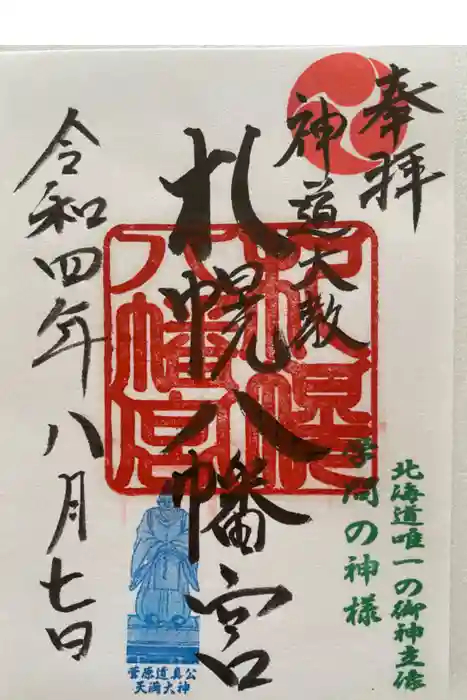 奉拝
神道大教
札幌八幡宮
札幌
八幡宮
令和四年八月七日
北海道唯一の御神立像
学問の神様
菅原道真公
天満大神